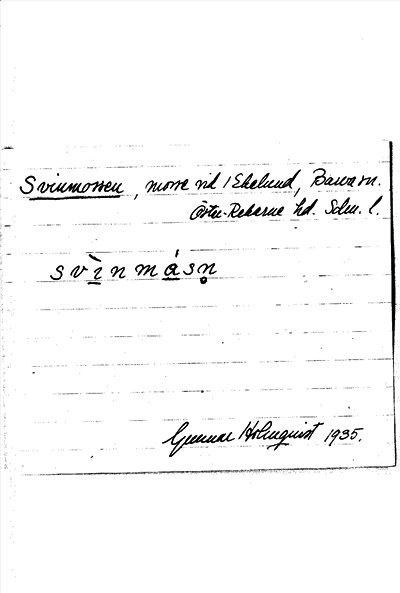 Svinmossen, mosse vid / Ekelund, Barva sn.
Öster-Rekarne hd. Sdm. l.
svì̲nmá̲sn̥
Gunnar Holmquist 1935.